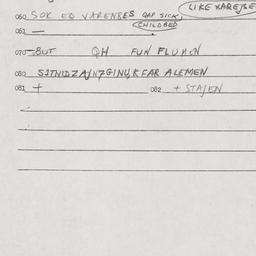 LIKE XAREJSE
060 SOK EQ VARENSES QAF SICK,
CHILDBED
061 —
070 -BUT QH FUN FLUMEN
080 SITNIDZAJN7GINU,K FAR ALEMEN
081 + 082 + STAJEN